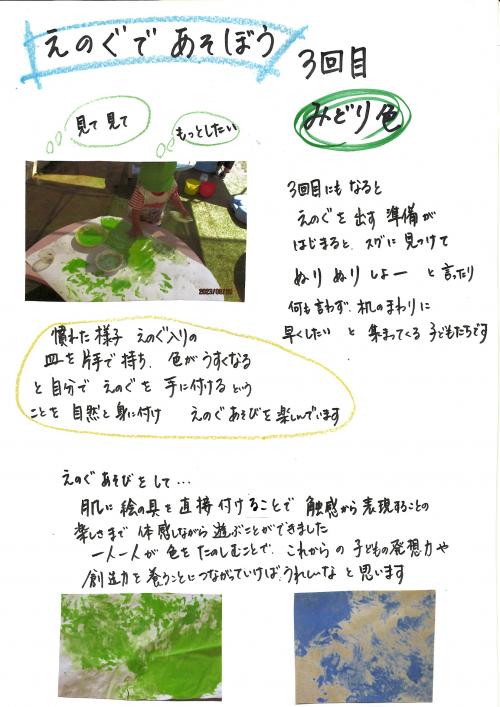 えのぐで あそぼう
3回目
みどり色
見て 見て
もっとしたい
3回目にも なると
えのぐを 出す 準備が
はじまると、スグに 見つけて
ぬり ぬり しよー と 言ったり
何も言わず、机のまわりに
早くしたい と 集まってくる 子どもたちです
慣れた様子 えのぐ入りの
皿を片手で持ち、色がうすくなる
と自分で えのぐを 手に付ける という
ことを 自然と身に付け えのぐあそびを楽しんでいます
えのぐ あそびをして…
肌に 絵の具を 直接付けることで 触感から表現することの
楽しさまで 体感しながら 遊ぶことができました
一人一人が 色を たのしむことで、これからの 子どもの発想力や
創造力を 養うことにつながっていけばうれしいな と 思います